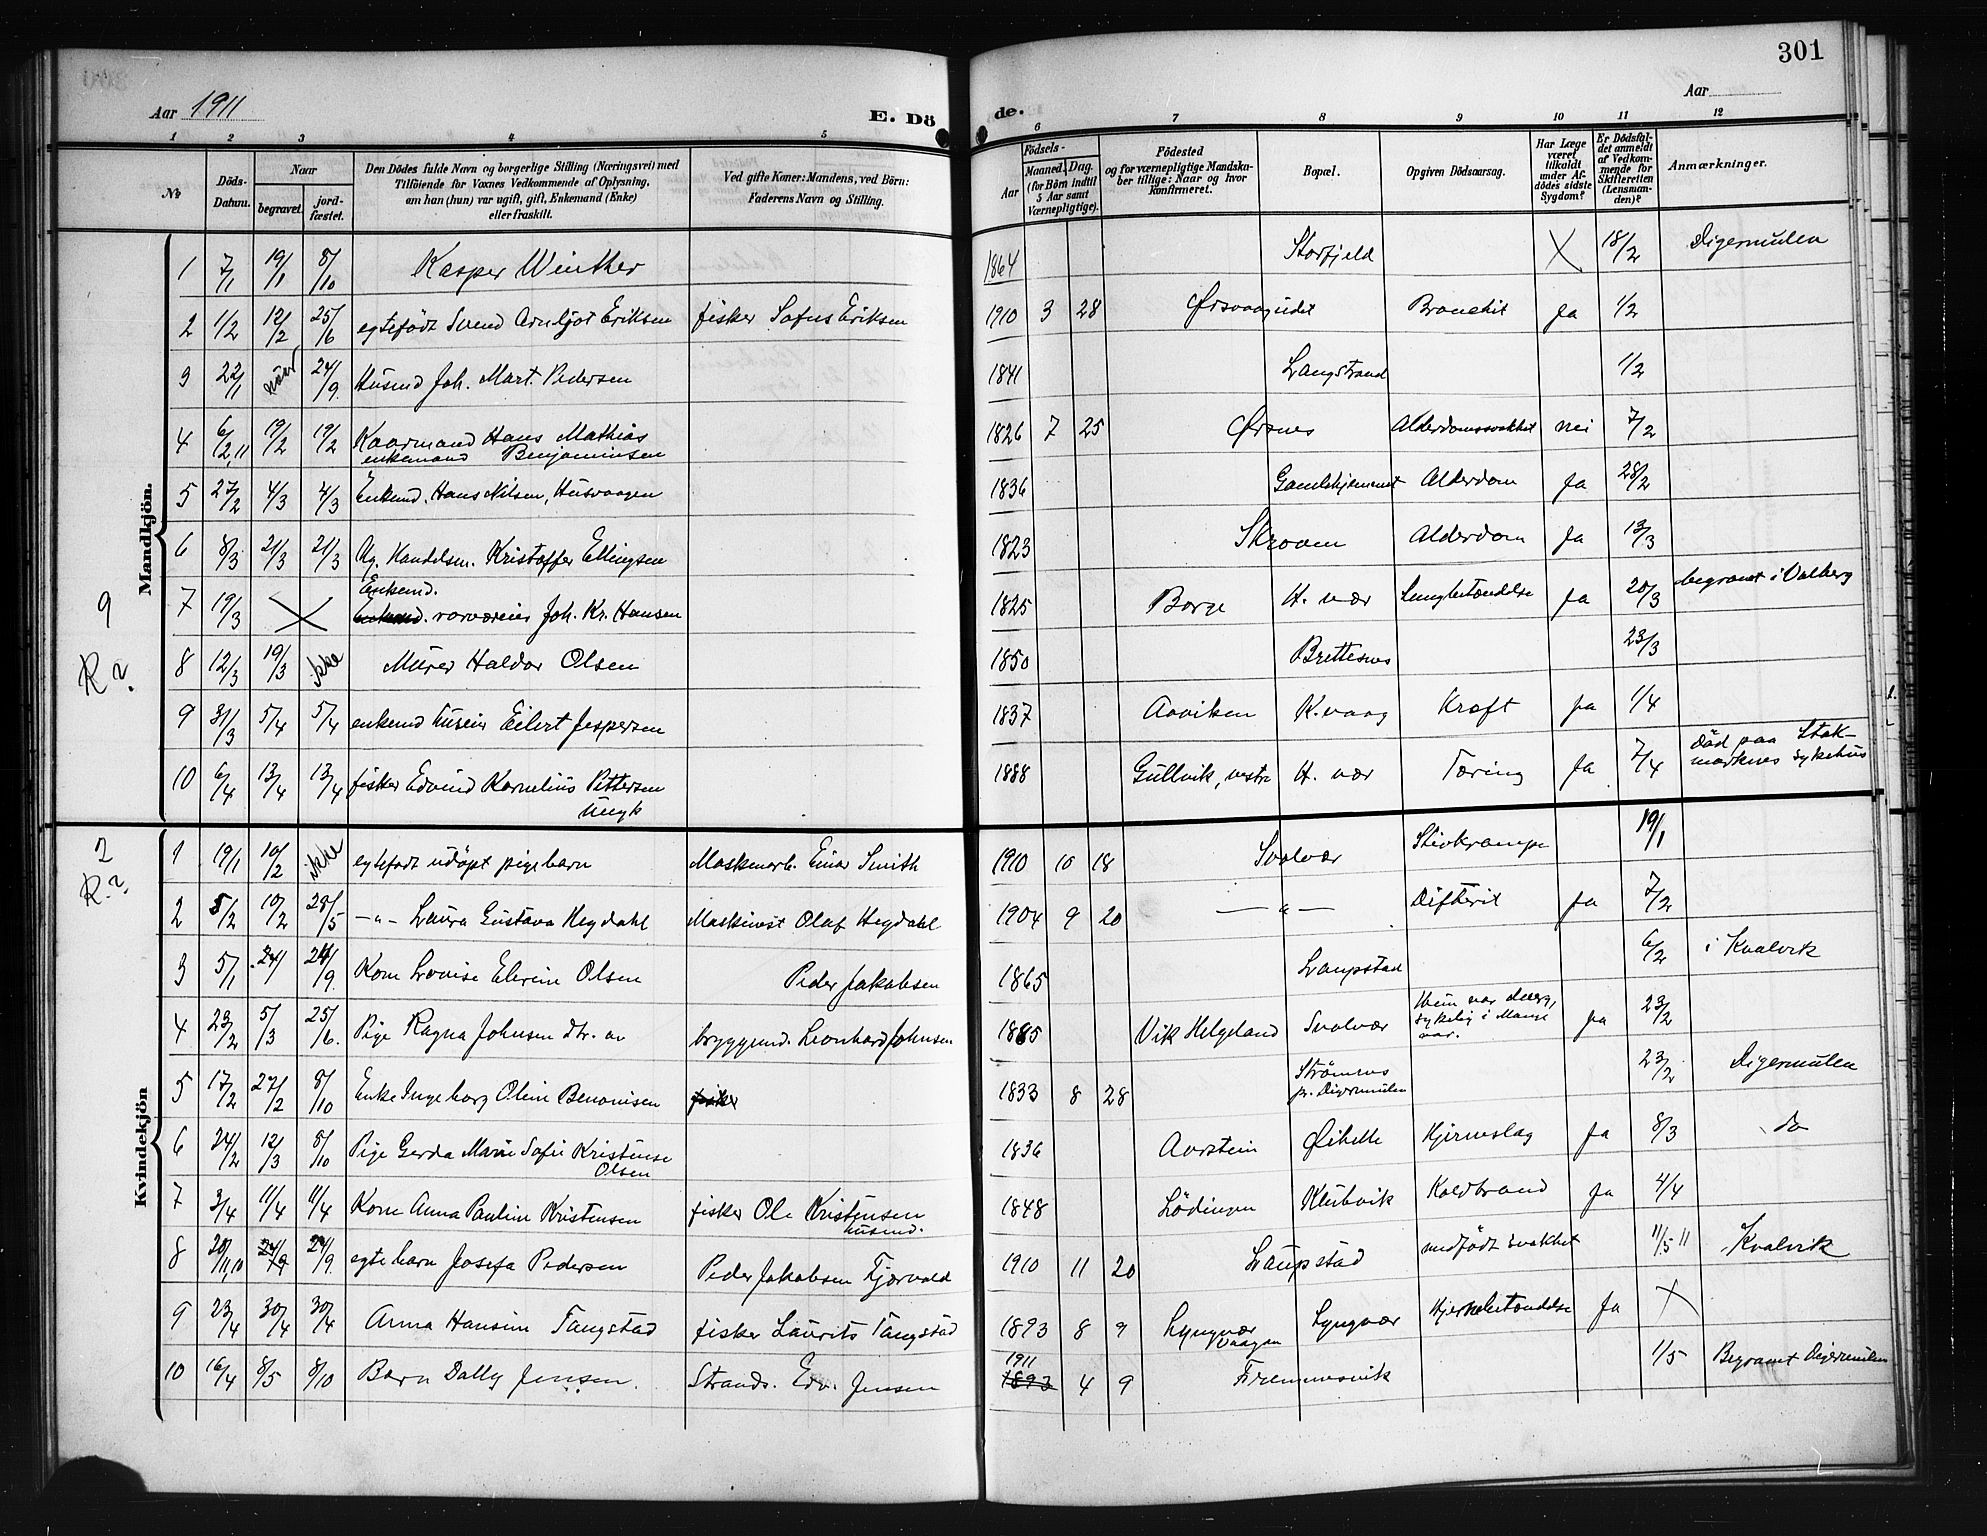 301
Aar 1911
E. Dö
de.
Aar
1 2 3 4 5 6 7 8 9 10 11 12
No
Döds-
Datum.
Naar
begravet.
jord-
fæstet.
Den Dödes fulde Navn og borgerlige Stilling (Næringsvei) med
Tilföiende for Voxnes Vedkommende af Oplysning,
om han (hun) var ugift, gift, Enkemand (Enke)
eller fraskilt.
Ved gifte Koner: Mandens, ved Börn:
Faderens Navn og Stilling.
Födsels-
Aar
Maaned. Dag.
(for Börn indtil
5 Aar samt
Værnepligtige).
Födested
og for værnepligtige Mandska-
ber tillige: Naar og hvor
konfirmeret.
Bopæl.
Opgiven Dödsaarsag.
Har Læge
været
tilkaldt
under Af-
dödes sidste
Sygdom?
Er Dödsfal-
det anmeldt
af Vedkom-
mende for
Skifteretten
(Lensman-
den)?
Anmærkninger.
Mandkjön.
9
R?
1 7/1 19/1 8/10 Kasper Winther 1864 Storfjeld X 18/2 Digermulen
2 1/2 12/2 25/6 egtefödt Svend Arnljot Eriksen fisker Sofus Eriksen 1910 3 28 Ørsvaagvidet Bronchit Ja 1/2
3 22/1 24/9. Husmd Joh. Mart. Pedersen 1841 Langstrand 1/2
4 6/2,11 19/2 19/2 Kaarmand Hans Mathias
enkemand Benjaminsen 1826 7 25 Ørsnes Alderdomssvakhet nei 7/2
5 27/2 4/3 4/3 Enkemd. Hans Nilsen, Husvaagen 1836 Gamlehjemmet Alderdom Ja 28/2
6 8/3 21/3 21/3 Ug. Handelsm. Kristoffer Ellingsen 1823 Skroven Alderdom Ja 13/3
Enkemd.
7 19/3 X enkemd. rorværeier Joh. Kr. Hansen 1825 Borge H. vær Lungbetændelse Ja 20/3 begravet i Valberg
8 12/3 19/3 ikke Murer Haldor Olsen 1850 Brettesnes 23/3
9 31/3 5/4 5/4 enkemd huseier Eilert Jespersen 1837 Aaviken K.vaag Kræft ja 1/4
10 6/4 13/4 13/4 fisker Edvind Kornelius Pettersen
Ungk 1888 Gullvik, vestre H. vær Tæring Ja 7/4 död paa Stok-
marknes sykehus
Kvindekjön
2
R?
1 19/1 10/2 ikke egtefodt udöpt pigebarn Maskinarb. Einar Smith 1910 10 18 Svolvær Stivkrampe 19/1
2 5/2 10/2 28/5 —"— Laura Gustava Hegdahl Maskinist Olaf Hegdahl 1904 9 20 —"— Difterit ja 7/2
3 5/1 24/1 24/9. Kone Lovise Elerine Olsen Peder Jakobsen 1865 Laupstad 6/2 i Kvalvik
4 23/2 5/3 25/6. Pige Ragna Johnsen dtr. av bryggemd. Leonhard Johnsen 1885 Vik Helgeland Svolvær
sykelig i Mange
aar. ja 23/2
5 17/2 27/2 8/10 Enke Ingeborg Oline Benonisen fisker 1833 8 28 Strömnes
pr. Digermulen 23/2 Digermulen
6 24/2 12/3 8/10 Pige Gerda Marie Sofie Kristense
Olsen 1836 Aarstein Øihelle Hjerneslag Ja 8/3 do
7 3/4 11/4 11/4 Kone Anna Pauline Kristensen fisker Ole Kristensen
husmd. 1848 Lödingen Klubvik Koldbrand ja 4/4
8 20/11,10 24/9 24/9. egte barn Josefa Pedersen Peder Jakobsen Fjærvold 1910 11 20 Laupstad medfödt svakhet 11/5 11 Kvalvik
9 23/4 30/4 30/4 Anna Hansine Tangstad fisker Laurits Tangstad 1893 8 9 Lyngvær
Vaagen Lyngvær Hjernebetændelse Ja X
10 16/4 8/5 8/10 Barn Dally Jensen. Strands. Edv. Jensen 1911
1893 4 9 Fremmesvik 1/5 Begravet Digermulen